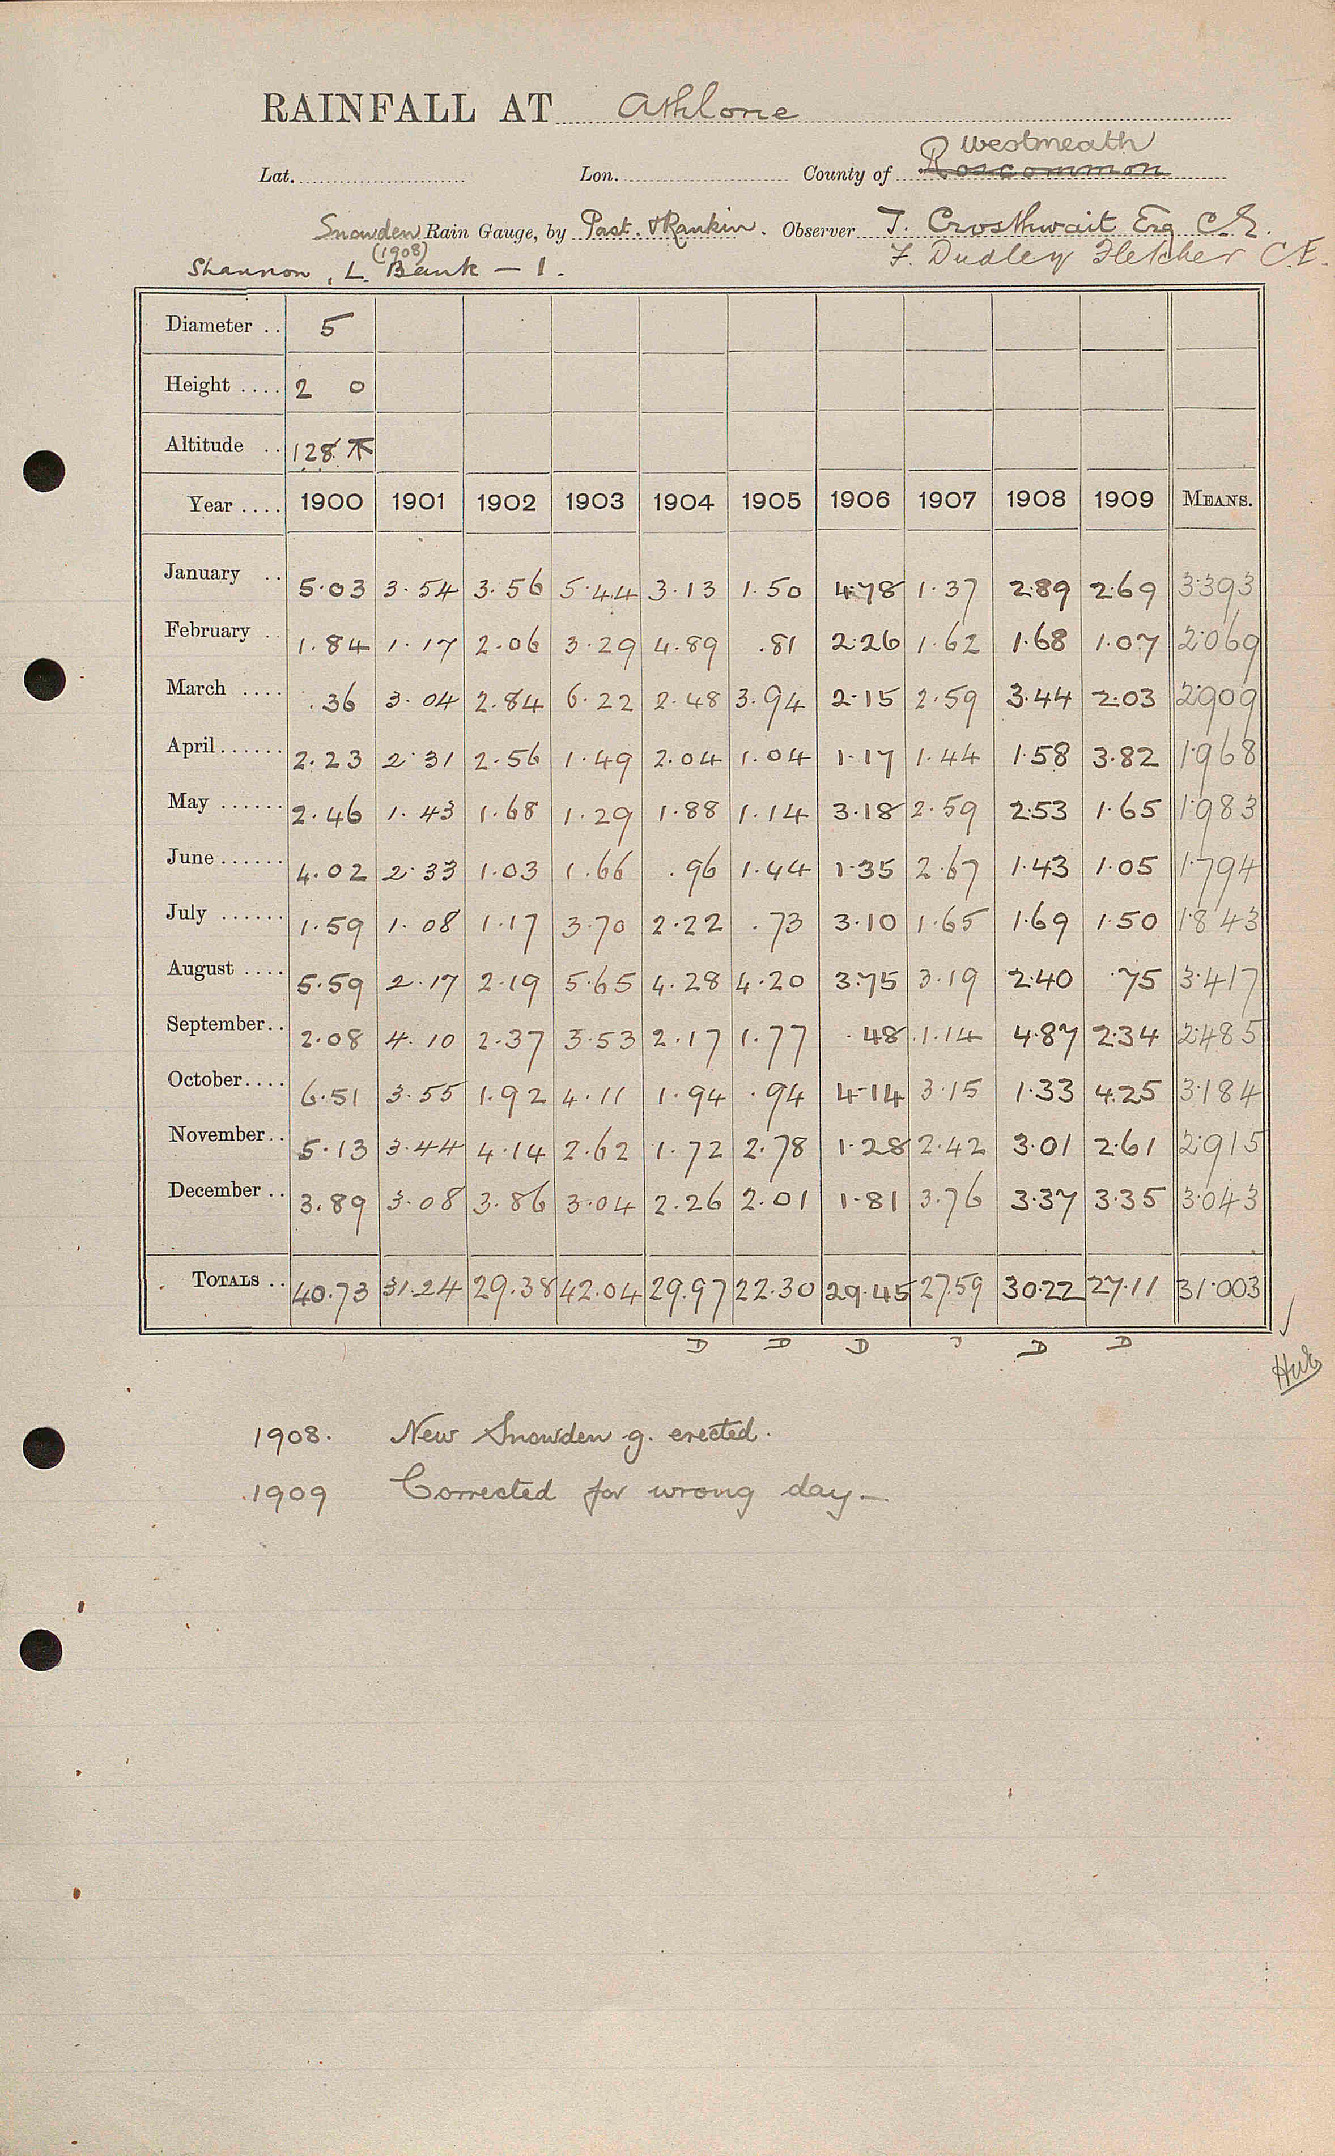 RAINFALL AT Athlone
Westmeath
Lat. Lon. County of Roscommon
Snowden Rain Gauge, by Past. & Rankin. Observer T. Crosthwait Esq C.E.
(1908) F. Dudley Fletcher C.E.
Shannon, L. Bank — 1.
Diameter .. 5
Height .... 2 0
Altitude .. 128
Year .... 1900 1901 1902 1903 1904 1905 1906 1907 1908 1909 MEANS.
January .. 5.03 3.54 3.56 5.44 3.13 1.50 4.78 1.37 2.89 2.69 3.393
February .. 1.84 1.17 2.06 3.29 4.89 .81 2.26 1.62 1.68 1.07 2.069
March .... .36 3.04 2.84 6.22 2.48 3.94 2.15 2.59 3.44 2.03 2.909
April...... 2.23 2.31 2.56 1.49 2.04 1.04 1.17 1.44 1.58 3.82 1.968
May ...... 2.46 1.43 1.68 1.29 1.88 1.14 3.18 2.59 2.53 1.65 1.983
June...... 4.02 2.33 1.03 1.66 .96 1.44 1.35 2.67 1.43 1.05 1.794
July ...... 1.59 1.08 1.17 3.70 2.22 .73 3.10 1.65 1.69 1.50 1.843
August .... 5.59 2.17 2.19 5.65 4.28 4.20 3.75 3.19 2.40 .75 3.417
September.. 2.08 4.10 2.37 3.53 2.17 1.77 .48 1.14 4.87 2.34 2.485
October.... 6.51 3.55 1.92 4.11 1.94 .94 4.14 3.15 1.33 4.25 3.184
November.. 5.13 3.44 4.14 2.62 1.72 2.78 1.28 2.42 3.01 2.61 2.915
December .. 3.89 3.08 3.86 3.04 2.26 2.01 1.81 3.76 3.37 3.35 3.043
TOTALS .. 40.73 31.24 29.38 42.04 29.97 22.30 29.45 27.59 30.22 27.11 31.003
D D D D D D
1908. New Snowden g. erected.
1909 Corrected for wrong day —